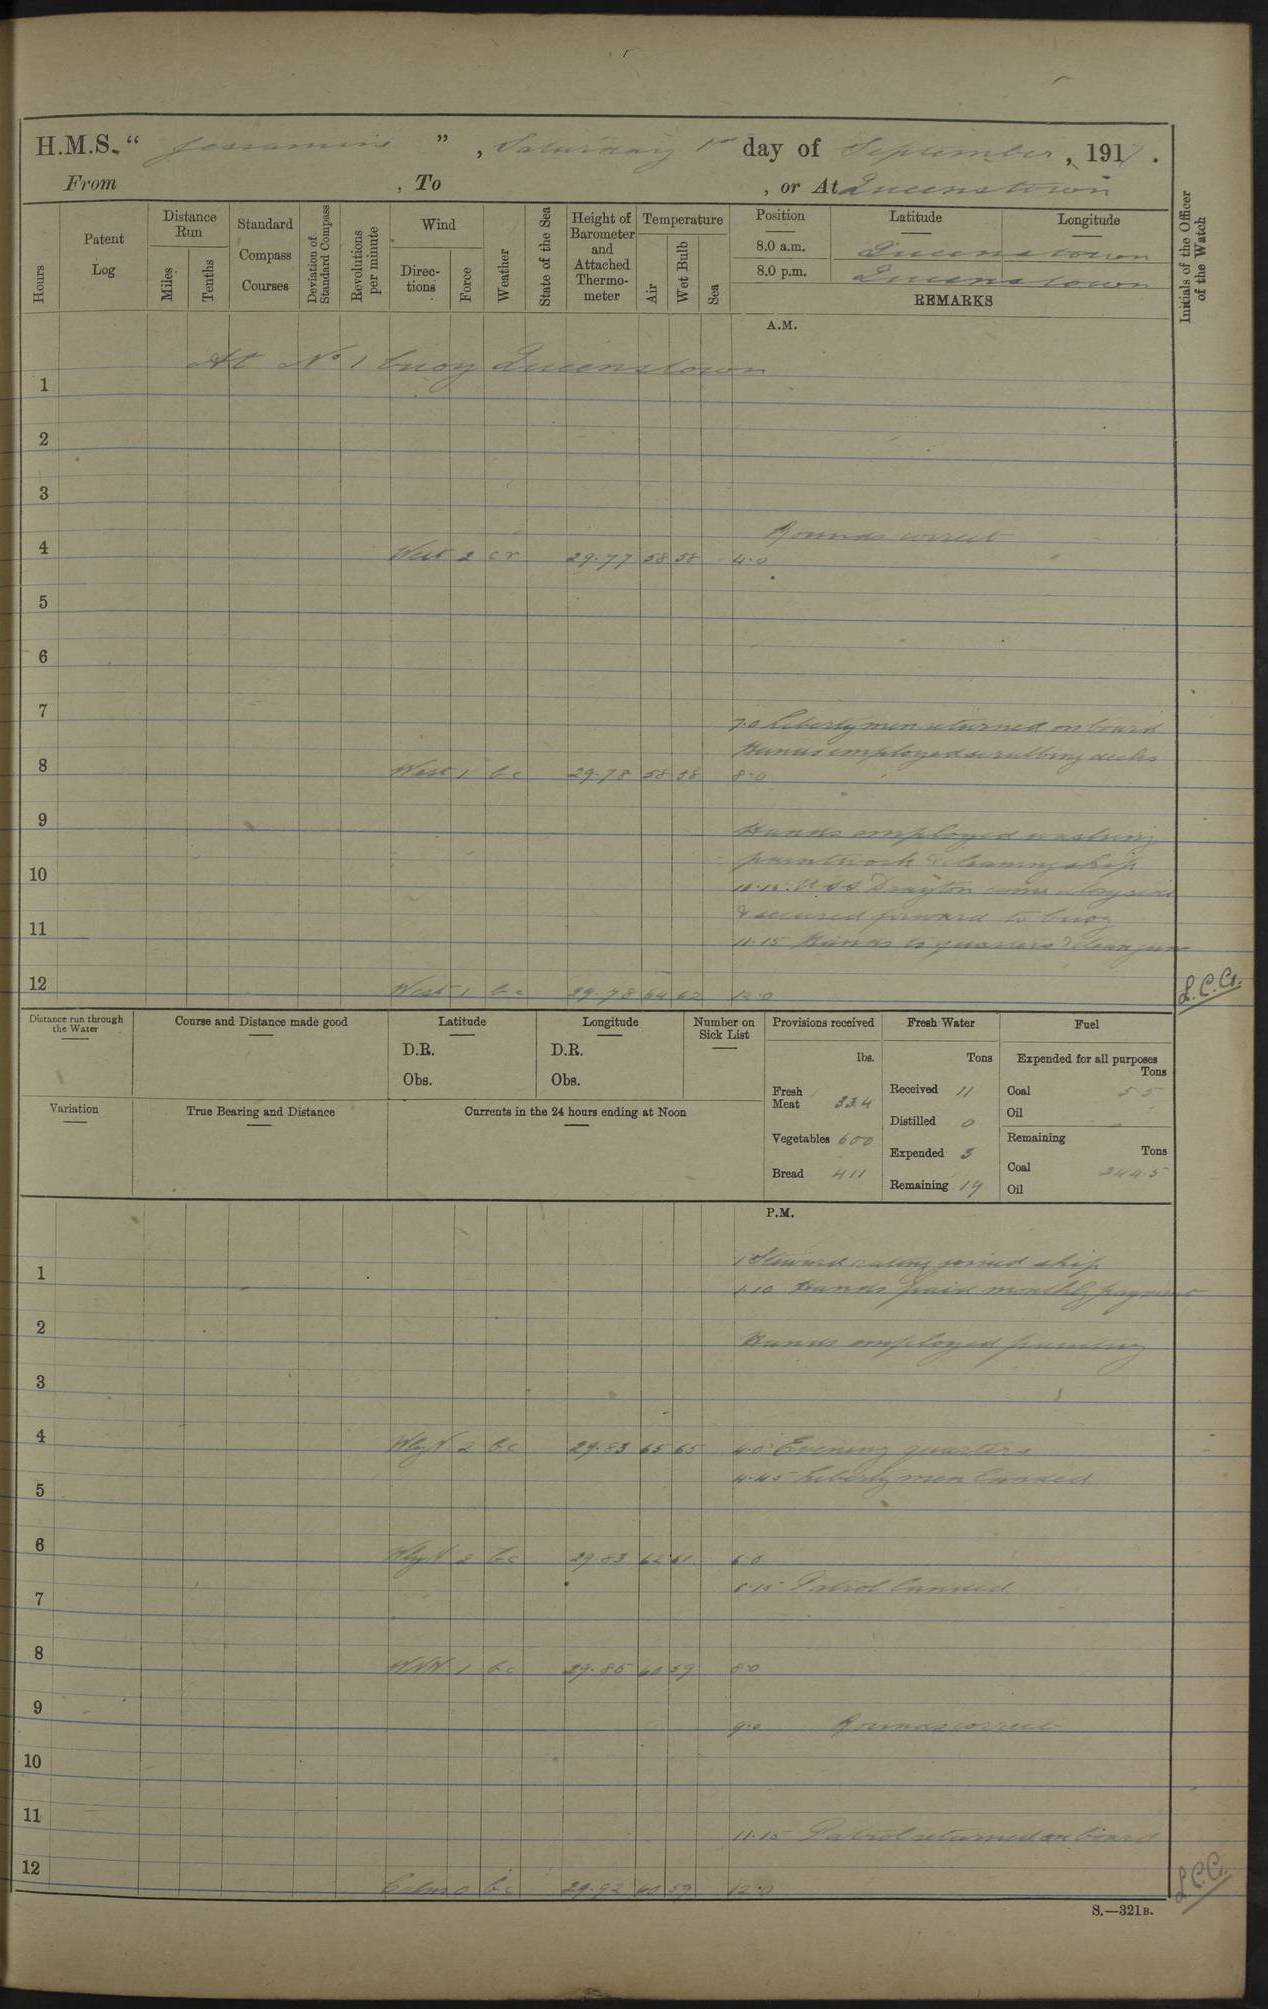 H.M.S. "Jessamine", Saturday 1st day of September, 1917.
From , To , or At Queenstown
Hours
Patent Log
Distance Run
Miles
Tenths
Standard Compass Courses
Deviation of Standard Compass
Revolutions per minute
Wind
Direc-tions
Force
Weather
State of the Sea
Height of Barometer and Attached Thermo-meter
Temperature
Air
Wet Bulb
Sea
Position
Latitude
Longitude
8.0 a.m. Queenstown
8.0 p.m. Queenstown
REMARKS
Initials of the Officer of the Watch
A.M.
At No 1 buoy Queenstown
1
2
3
Rounds correct
4 West 2 c r 29.77 58 58 4.0
5
6
7
7.0 Liberty men returned on board
Hands employed scrubbing decks
8 West 1 b c 29.78 58 58 8.0
9
Hands employed washing
paintwork & cleaning ship
10
U S S Drayton came alongside
& secured forward to buoy
11
11.15 Hands to quarters clean guns
12 West 1 b c 29.78 64 62 12.0
L.C.C.
Distance run through the Water
Course and Distance made good
Latitude
D.R.
Obs.
Longitude
D.R.
Obs.
Number on Sick List
Provisions received
lbs.
Fresh Meat 334
Vegetables 600
Bread 411
Fresh Water
Tons
Received 11
Distilled 0
Expended 3
Remaining 19
Fuel
Expended for all purposes
Tons
Coal 5 5
Oil
Remaining
Tons
Coal 244.5
Oil
Variation
True Bearing and Distance
Currents in the 24 hours ending at Noon
P.M.
1 Steward rating joined ship
1
1.10 Hands paid monthly payment
2
Hands employed painting
3
4 WbyN 2 b c 29.83 65 65 4.0 Evening quarters
4.45 Liberty men landed
5
6 WbyN 2 b c 29.83 62 61 6.0
Patrol landed
7
8 WNW 1 b c 29.85 60 59 8.0
9
9.0 Rounds correct
10
11
11.15 Patrol returned on board
12 Calm 0 b c 29.92 60 59 12.0
L.C.C.
S.—321B.